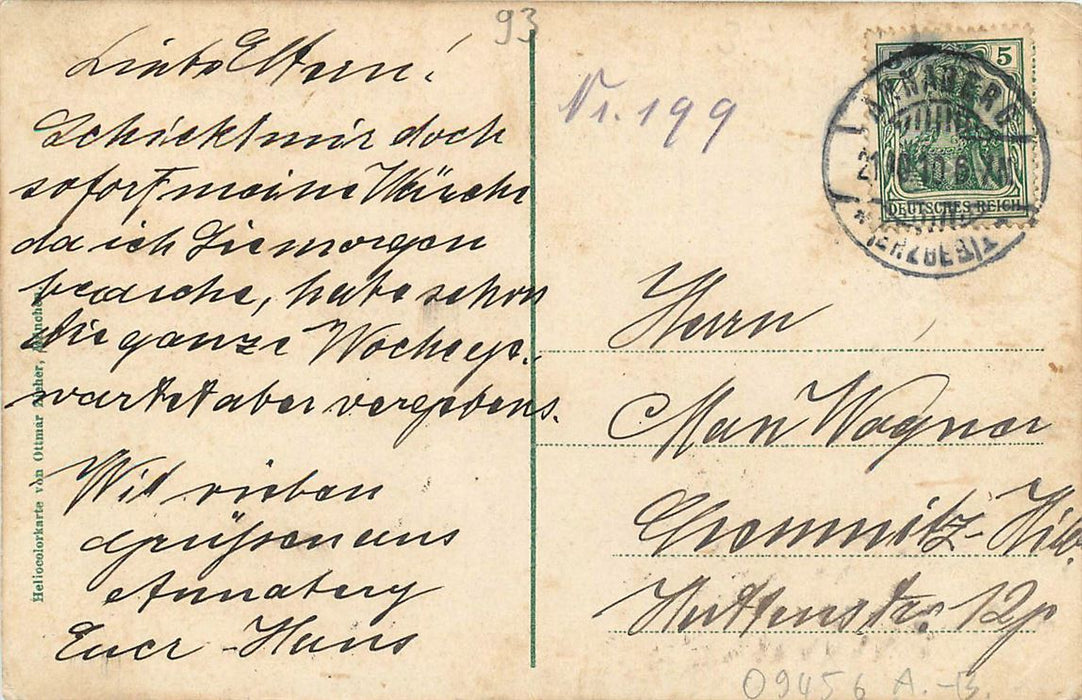 93
Liebe Eltern!
Schickt mir doch
sofort meine Wäsche
da ich Sie morgen
brauche, habe schon
die ganze Woche ge-
wartet aber vergebens.
Mit vielen
Grüssen aus
Annaberg
Euer Hans
Heliocolorkarte von Ottmar Zieher, München
Nr. 199
5
DEUTSCHES REICH
ANNABERG
ERZGEB
Herrn
Max Wagner
Chemnitz-Hilb.
Huttenstr. 12p
09456 A.-B